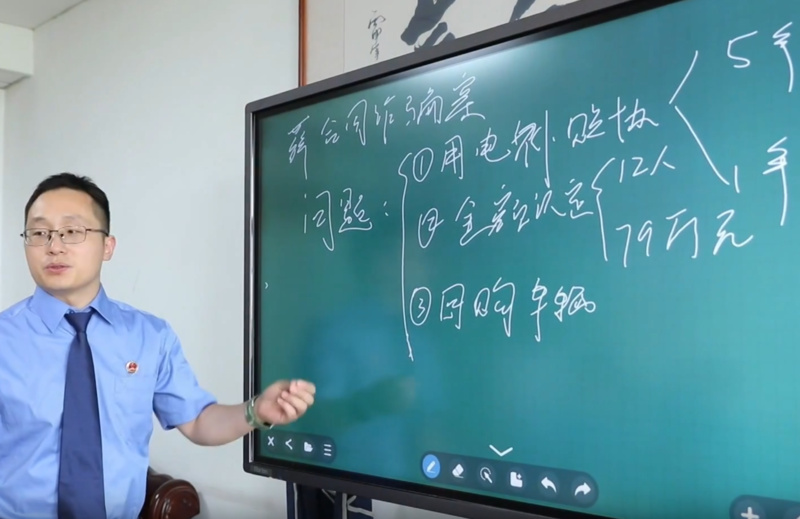 合同诈骗案
问题：
① 用电 5年
1年
② 金额认定 12人
79万元
③ 回购车辆